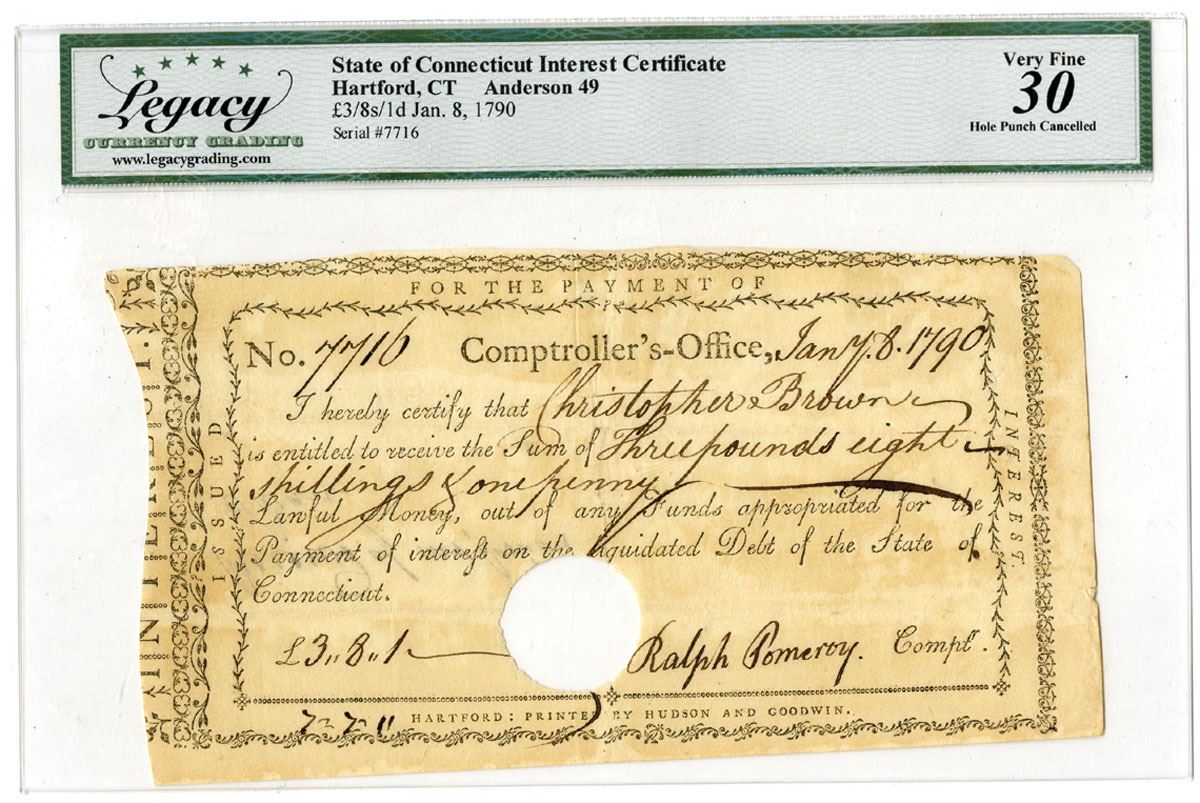 Legacy
CURRENCY GRADING
www.legacygrading.com
State of Connecticut Interest Certificate
Hartford, CT Anderson 49
£3/8s/1d Jan. 8, 1790
Serial #7716
Very Fine
30
Hole Punch Cancelled
FOR THE PAYMENT OF
No. 7716 Comptroller's-Office, Jany. 8. 1790
I hereby certify that Christopher Brown
is entitled to receive the Sum of Three pounds eight
shillings & one penny
Lawful Money, out of any Funds appropriated for the
Payment of intereſt on the liquidated Debt of the State of
Connecticut.
£3,,8,,1
Ralph Pomeroy. Comptr.
HARTFORD: PRINTE BY HUDSON AND GOODWIN.
ISSUED
INTEREST.